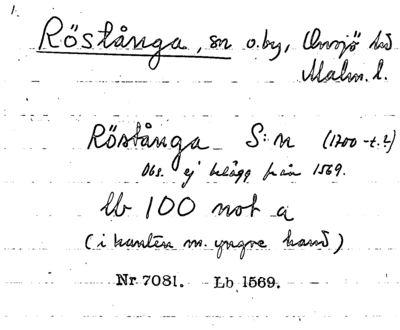 1.
Röstånga, sn o. by, Onsjö hd
Malm. l.
Röstånga S:n (1700-t.?)
Obs. ej belägg från 1569.
lb 100 not a
(i kanten m. yngre hand)
Nr 7081. Lb 1569.